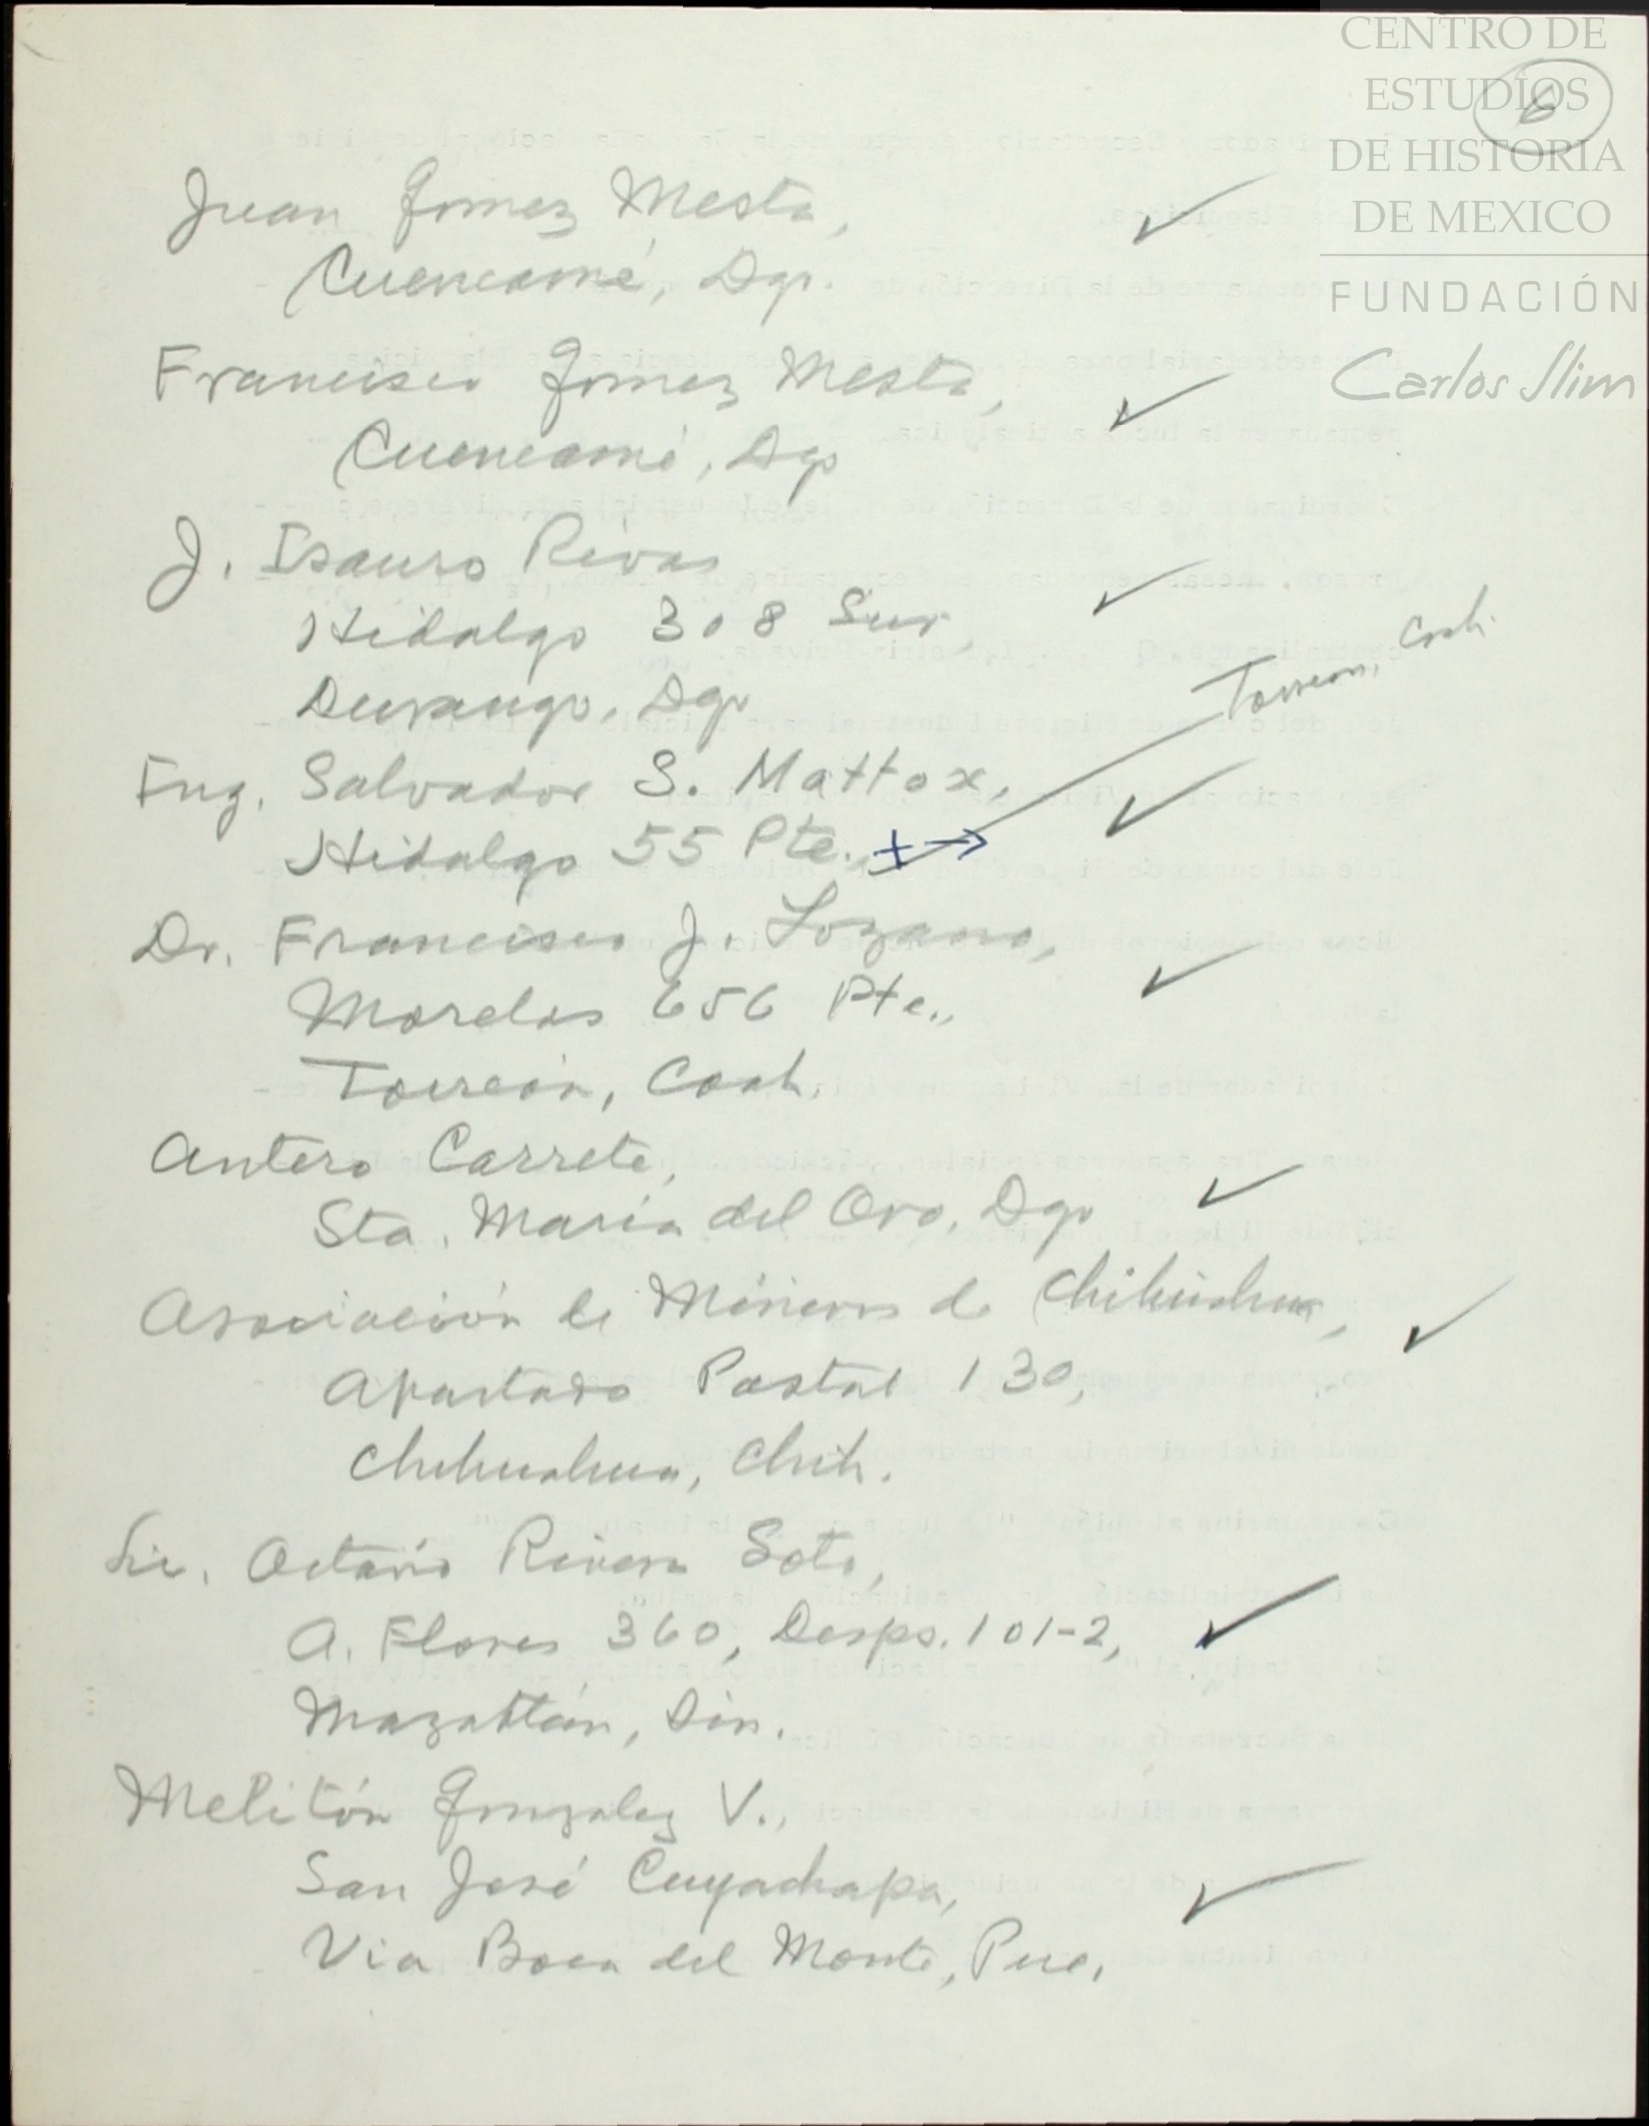 CENTRO DE
ESTUDIOS
DE HISTORIA
DE MEXICO
FUNDACIÓN
Carlos Slim
6
Juan Gomez Mesta, ✓
Cuencamé, Dgo.
Francisco Gomez Mesta, ✓
Cuencamé, Dgo
J. Isauro Rivas
Hidalgo 308 Sur, ✓
Durango, Dgo
Torreon, Coah.
Ing. Salvador S. Mattox, ✓
Hidalgo 55 Pte.,
Dr. Francisco J. Lozano, ✓
Morelos 656 Pte.,
Torreón, Coah.
Antero Carrete,
Sta. María del Oro, Dgo ✓
Asociación de Mineros de Chihuahua, ✓
Apartado Postal 130,
Chihuahua, Chih.
Lic. Octavio Rivera Soto,
A. Flores 360, Desps. 101-2, ✓
Mazatlán, Sin.
Melitón Gonzalez V.,
San José Cuyachapa, ✓
Via Boca del Monte, Pue.